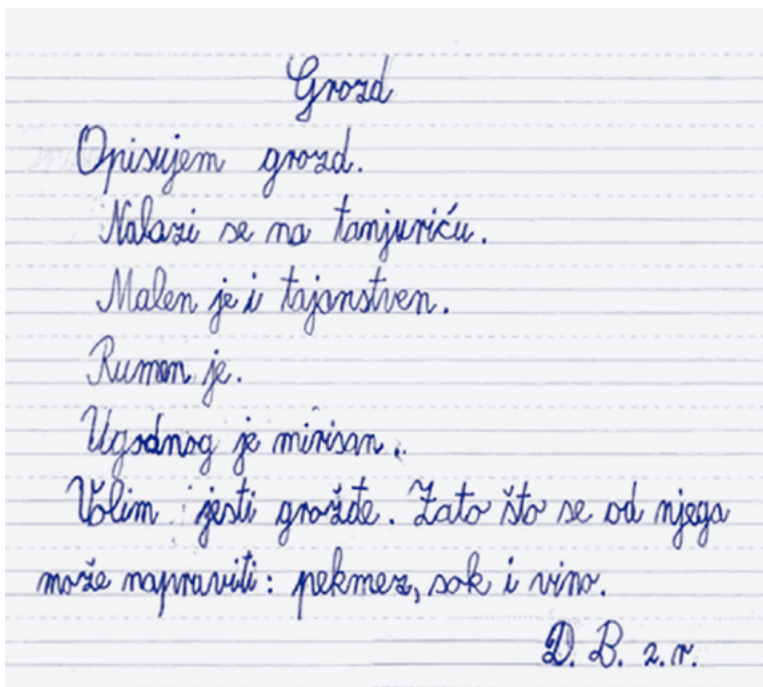 Grozd
Opisujem grozd.
Nalazi se na tanjuriću.
Malen je i tajanstven.
Rumen je.
Ugodnog je mirisan.
Volim jesti grožđe. Zato što se od njega
može napraviti: pekmez, sok i vino.
D. B. 2. r.